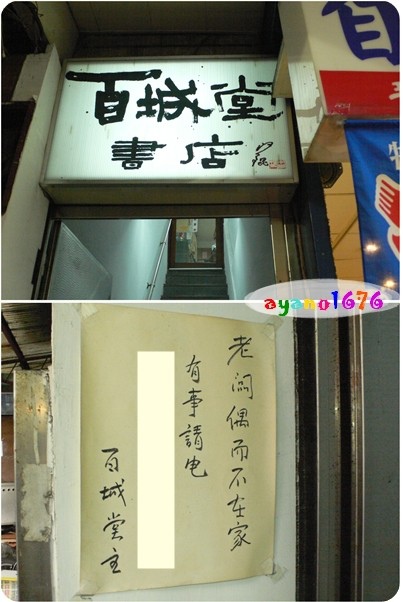 百城堂
書店
ayano1676
老闆偶而不在家
有事請电
百城堂主